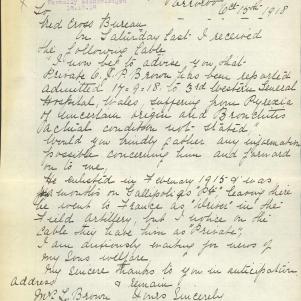 To
Red Cross Bureau
On Saturday last I received
the following Cable
"I now beg to advise you that
Private C. J. P. Brown has been reported
admitted 17-9-18 to 3rd Western General
Hospital, Wales, suffering from Pyrexia
of uncertain origin and Bronchitis
condition not stated"
Would you kindly gather any information
possible concerning him and forward
on to me.
He enlisted in February 1915 & was
months on Gallipoli as leaving there
he went to France as "driver" in the
Field Artillery, but I notice on the
Cable they have him as "Private",
I am anxiously waiting for news of
my Sons welfare,
My Sincere thanks to you in anticipation
Address & remain
L. Brown Yours Sincerely